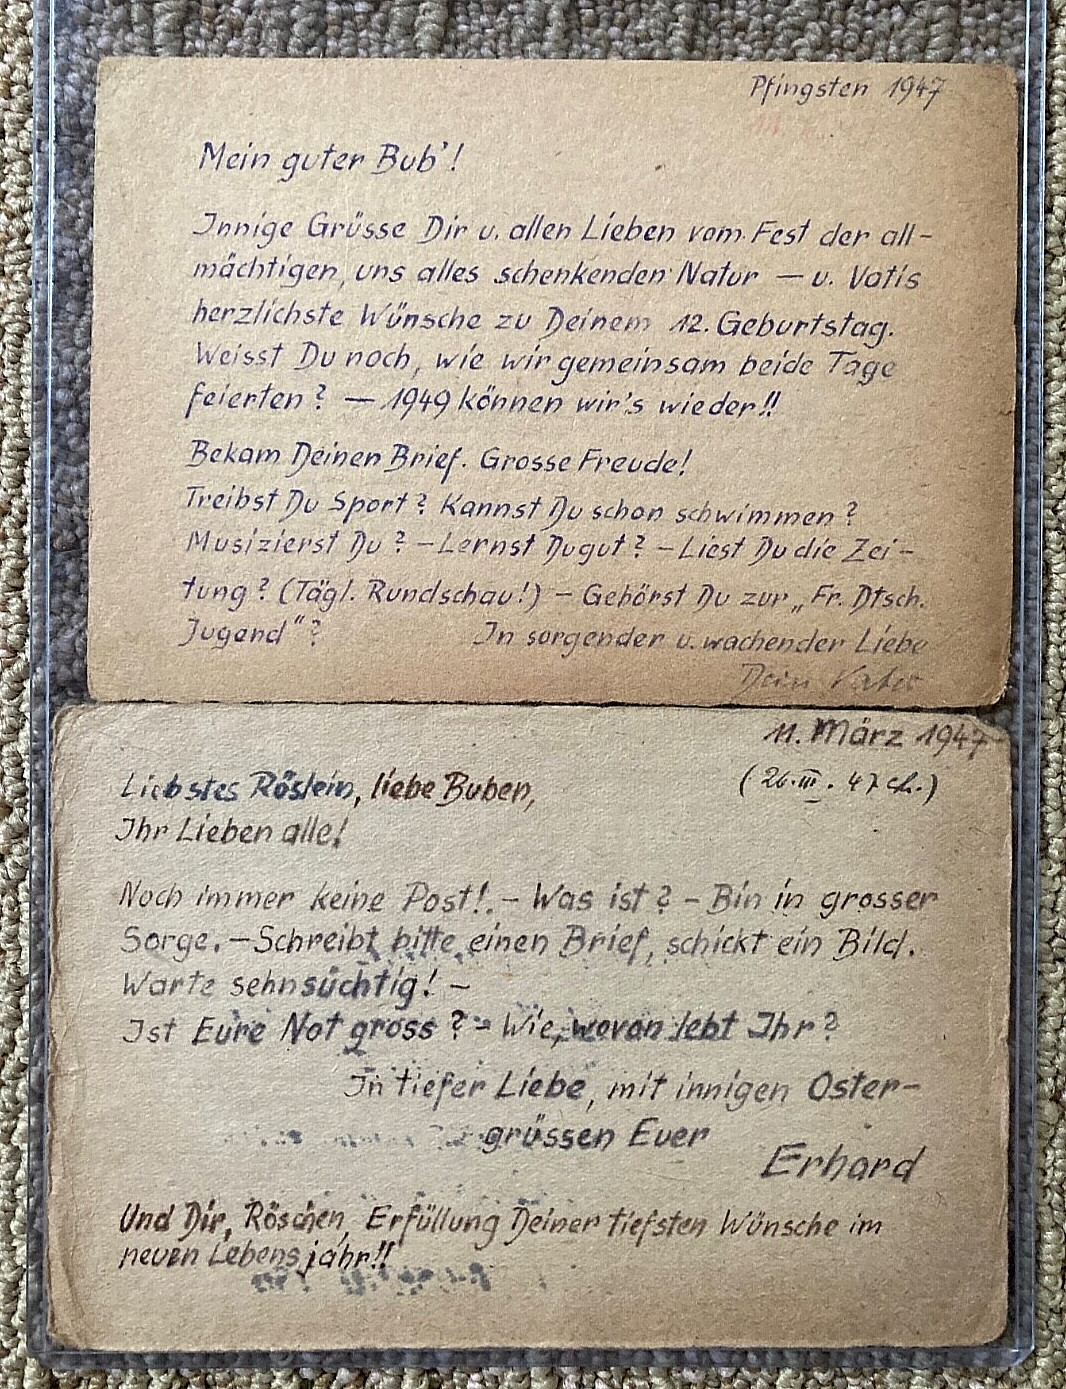 Pfingsten 1947
Mein guter Bub'!
Innige Grüsse Dir u. allen Lieben vom Fest der all-
mächtigen, uns alles schenkenden Natur — u. Vatis
herzlichste Wünsche zu Deinem 12. Geburtstag.
Weisst Du noch, wie wir gemeinsam beide Tage
feierten? — 1949 können wir's wieder!!
Bekam Deinen Brief. Grosse Freude!
Treibst Du Sport? Kannst Du schon schwimmen?
Musizierst Du? — Lernst Du gut? — Liest Du die Zei-
tung? (Tägl. Rundschau!) — Gehörst Du zur „Fr. Dtsch.
Jugend"? In sorgender u. wachender Liebe
Dein Vater
11. März 1947
(26.III.47 ch.)
Liebstes Röslein, liebe Buben,
Ihr Lieben alle!
Noch immer keine Post!. — Was ist? — Bin in grosser
Sorge. — Schreibt bitte einen Brief, schickt ein Bild.
Warte sehnsüchtig! —
Ist Eure Not gross? — Wie, wovon lebt Ihr?
In tiefer Liebe, mit innigen Oster-
grüssen Euer
Erhard
Und Dir, Röschen, Erfüllung Deiner tiefsten Wünsche im
neuen Lebensjahr!!